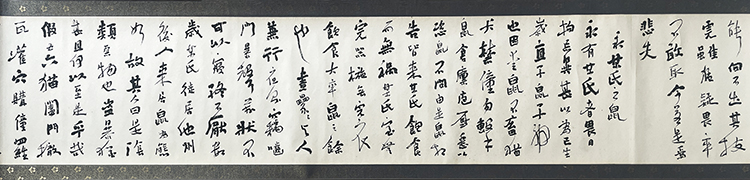 能向不出其技
虎雖猛疑畏卒
不敢取今若是焉
悲夫
永某氏之鼠
永有某氏者畏日
拘忌異甚以為己生
歲直子鼠子神
也因愛鼠不畜猫
犬禁僮勿擊鼠
倉廩庖厨悉以
恣鼠不問由是鼠相
告皆來某氏飽食
而無禍某氏室無
完器椸無完衣
飲食大率鼠之餘
也晝纍纍與人
兼行夜則竊嚙
鬥暴其聲萬狀不
可以寢終不厭數
歲某氏徙居他州
後人來居鼠為態
如故其人曰是陰
類惡物也盜暴尤
甚且何以至是乎哉
假五六猫闔門撤
瓦灌穴購僮羅